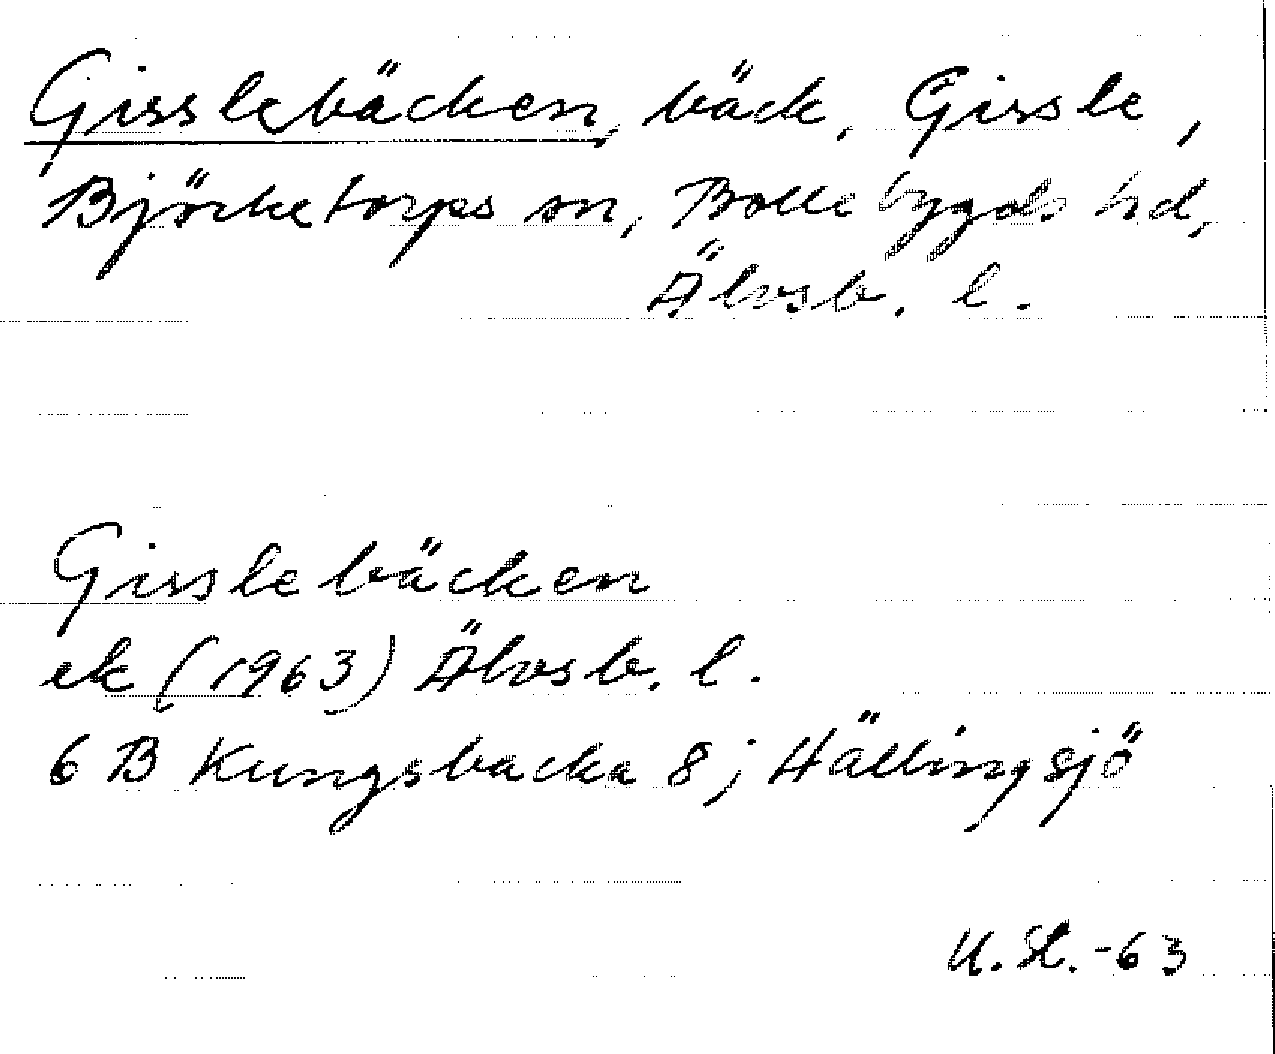 Gisslebäcken, bäck, Gissle,
Björketorps sn, Bollebygds hd,
Älvsb. l.
Gisslebäcken
ek (1963) Älvsb. l.
6 B Kungsbacka 8; Hällingsjö
U.St.-63